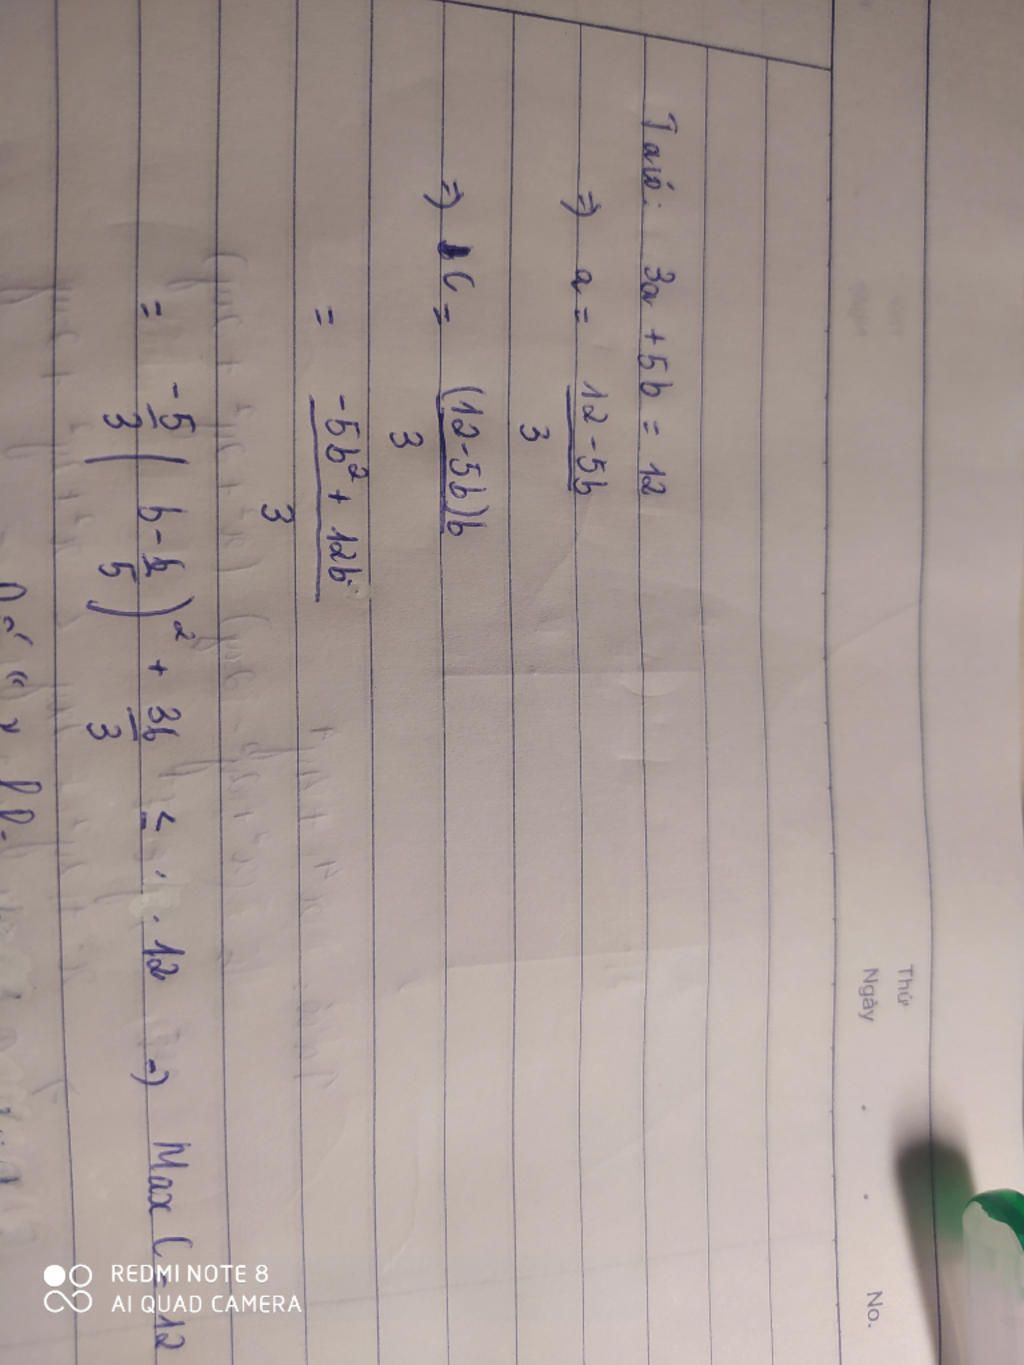 Thứ
Ngày . . No.
Ta có: 3a + 5b = 12
=) a = 12 - 5b / 3
=) C = (12 - 5b)b / 3
= -5b² + 12b / 3
= -5/3 ( b - 6/5 )² + 36/3 ≤ . . 12 =) Max C = 12
REDMI NOTE 8
AI QUAD CAMERA